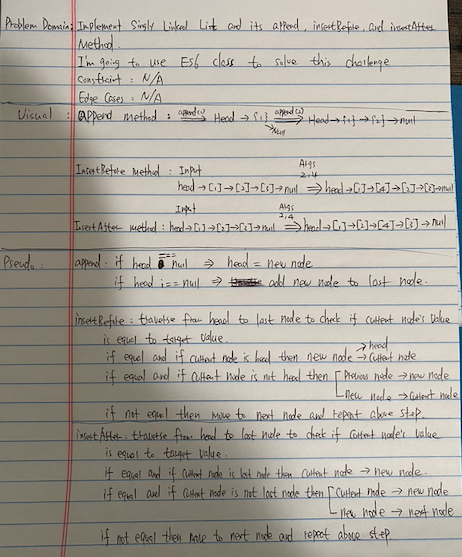 Problem Domain: Implement Singly Linked List and its append, insertBefore, and insertAfter
Method.
I'm going to use ES6 class to solve this challenge
Constraint : N/A
Edge Cases : N/A
Visual : append method : append(1) → Head → [1] → null append(2) → Head → [1] → [2] → null
InsertBefore method : Input Args 2,4
head → [1] → [2] → [3] → null ⇒ head → [1] → [4] → [2] → [3] → null
Input Args 2,4
InsertAfter method : head → [1] → [2] → [3] → null ⇒ head → [1] → [2] → [4] → [3] → null
Pseudo : append : if head === null ⇒ head = new node
if head !== null ⇒ add new node to last node.
insertBefore : traverse from head to last node to check if current node's value
is equal to target value.
if equal and if current node is head then new node → current node
→ head
if equal and if current node is not head then [ Previous node → new node
new node → current node
if not equal then move to next node and repeat above step.
insertAfter : traverse from head to last node to check if current node's value
is equal to target value.
if equal and if current node is last node then current node → new node.
if equal and if current node is not last node then [ current node → new node
new node → next node
if not equal then move to next node and repeat above step